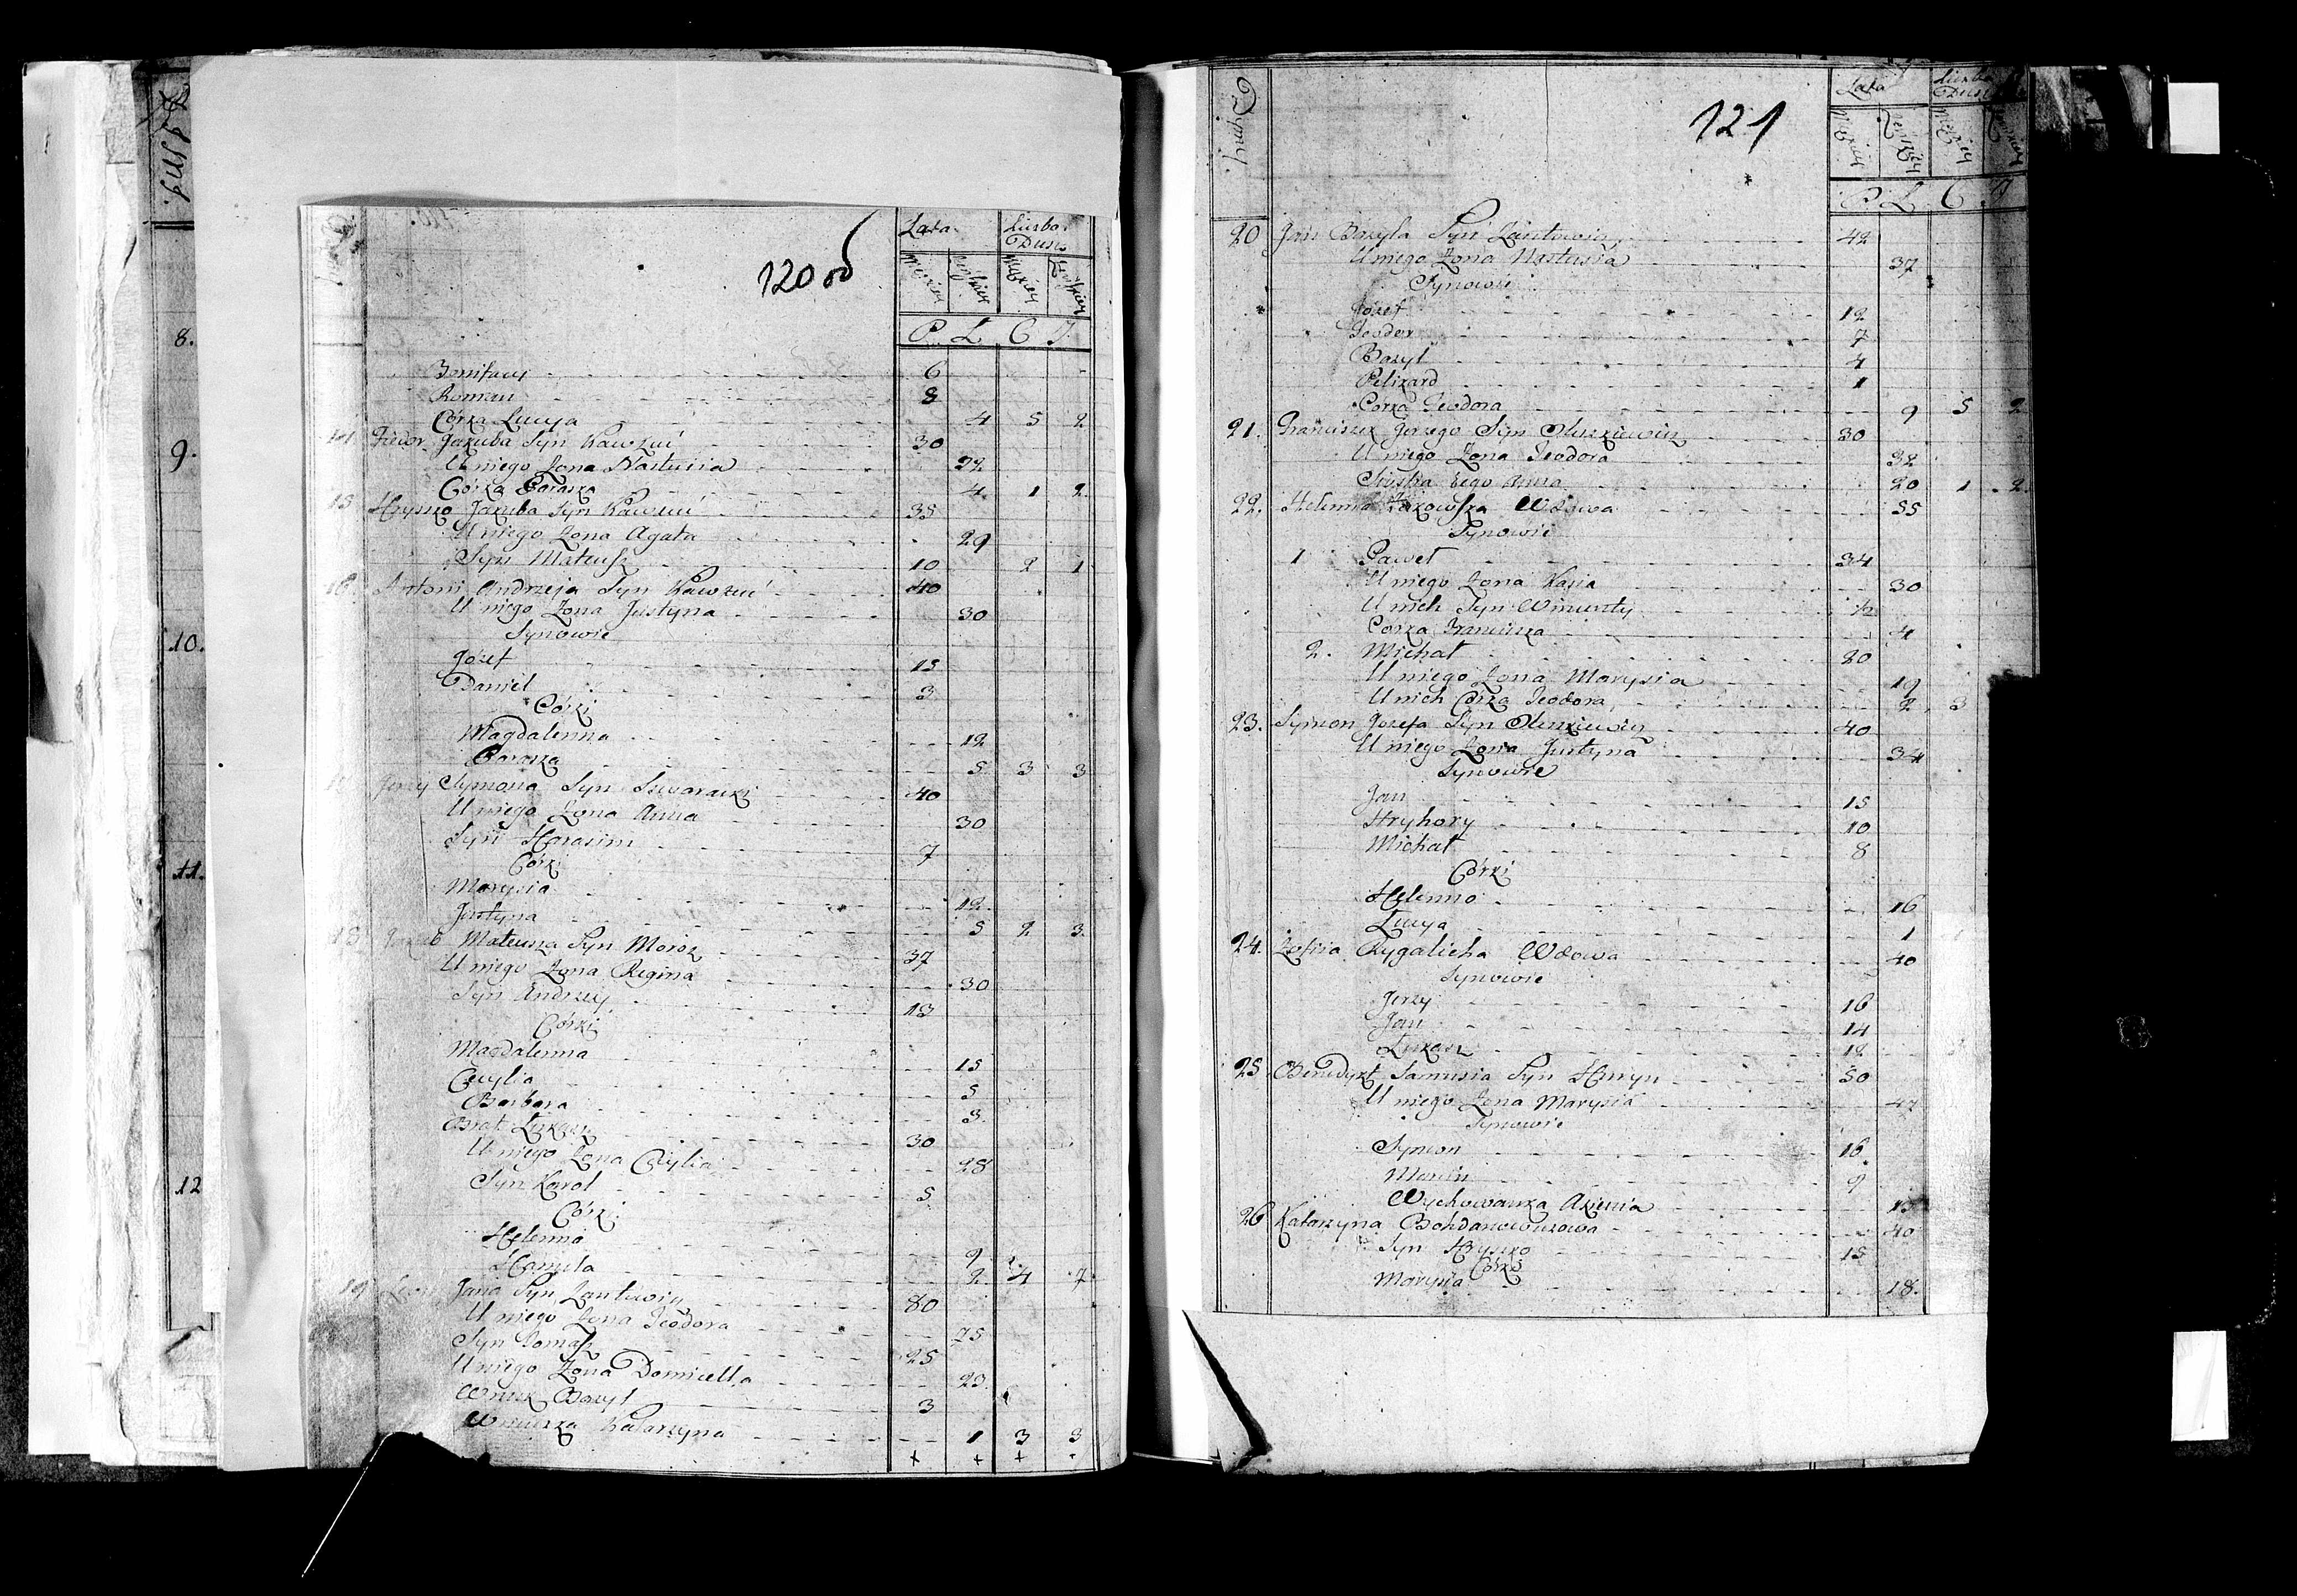 8.
9.
10.
11.
12
120 об
Lata Liczba Dusz
Męzkiey Żeńskiey Męzkiey Żeńskiey
P. L. C. J.
Bonifacy 6
Roman 8
Córka Lucya 4 5 2
14 Fiedor Jakuba Syn Kawzuć 30
U niego Żona Nastusia 22
Córka Paraska 4 1 2
15 Hryszko Jakuba Syn Kawzuć 35
U niego Żona Agata 29
Syn Mateusz 10 2 1
16. Antoni Andrzeja Syn Kawzuć 40
U niego Żona Justyna 30
Synowie
Józef 15
Daniel 3
Córki
Magdalenna 12
Paraska 5 3 3
Jerzy Symona Syn 40
U niego Żona Anna 30
Syn Harasim 7
Córki
Marysia 12
Justyna 5 2 3
18 Mateusza Syn Moroz 37
U niego Żona Regina 30
Syn Andrzey 13
Córki
Magdalenna 15
Cecylia 5
Barbara 3
Brat Łukasz 30
U niego Żona Cecylia 28
Syn Karol 5
Córki
Helenna 9
Hanula 2 4 7
19 Jana Syn Lantowicz 80
U niego Żona Teodora 75
Syn Tomasz 25
U niego Żona Domicella 23
Wnuk Bazyl 3
Wnuczka Katarzyna 1 3 3
+ + +
121
Dymy
Lata Liczba Dusz
Męzkiey Żeńskiey Męzkiey
P. L. C. J
20 Jan Bazyla Syn Lantowicz 42
U niego Żona Nastusia 37
Synowie
Józef 12
Teodor 7
Bazyl 4
Pelikard 1
Corka Teodora 9 5 2
21. Franciszek Jerzego Syn Oleszkiewicz 30
U niego Żona Teodora 32
Siostra Iego Anna 20 1 2
22. Helenna Wdowa 55
Synowie
1 Paweł 34
U niego Żona Kasia 30
U nich Syn Wincenty 1/2
Corka Franciszka 4
2. Michał 20
U niego Żona Marysia 19
U nich Córka Teodora 2 3
23. Symon Jozefa Syn Olenkiewicz 40
U niego Żona Justyna 34
Synowie
Jan 15
Hryhory 10
Michał 8
Córki
Helenna 16
Lucya 1
24. Zofiia Rygalicha Wdowa 40
Synowie
Jerzy 16
Jan 14
Łukasz 12
25. Benedykt Samusia Syn Huryn 50
U niego Żona Marysia 47
Synowie
Symon 16
Marcin 9
Wychowanka Axienia
26 Katarzyna Bohdanowiczowa 40
Syn Hryszko 15
Córki
Marysia 18.